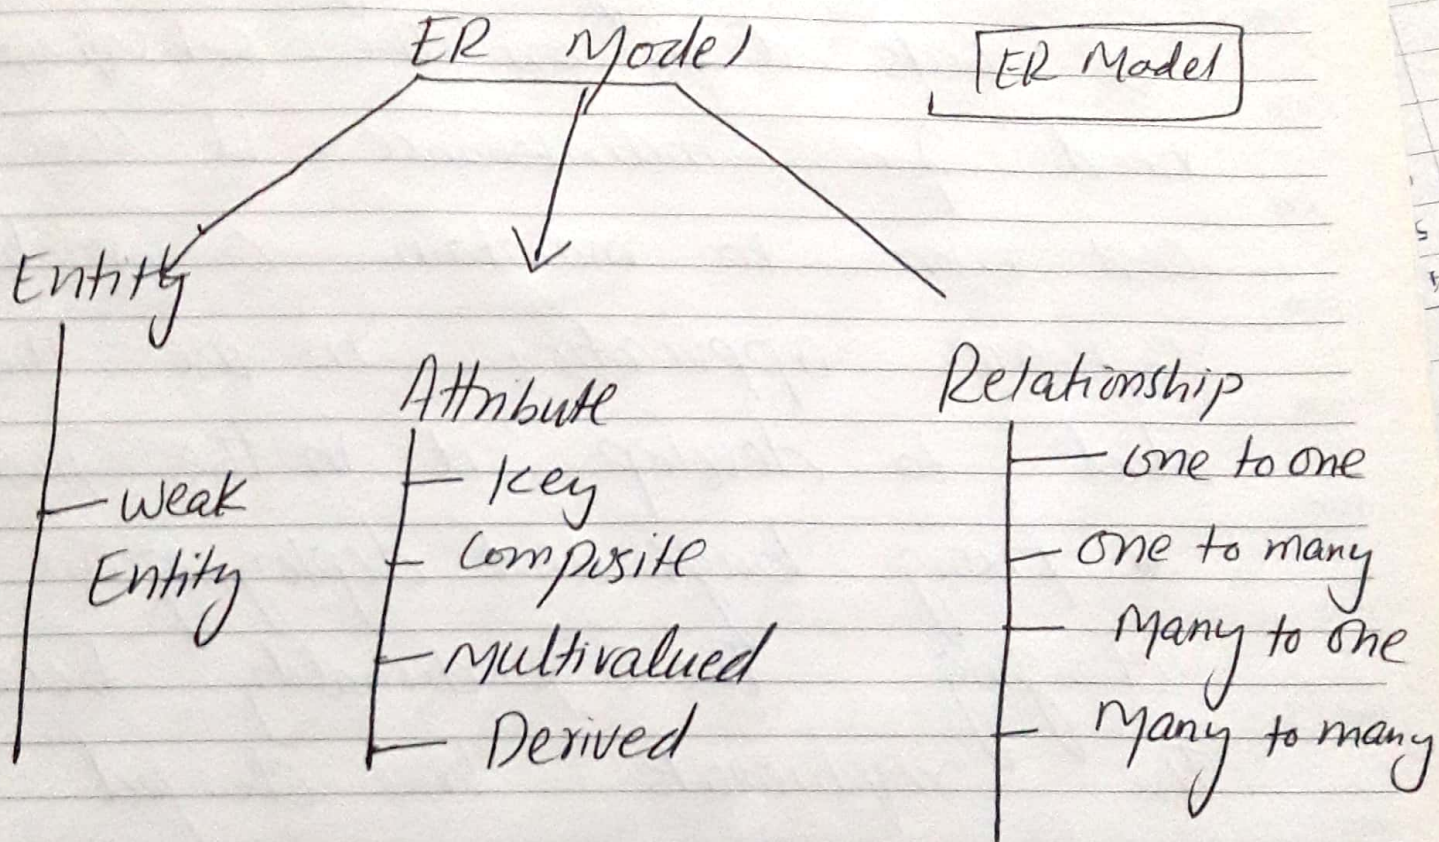 ER Model
ER Model
Entity
Weak
Entity
Attribute
Key
Composite
Multivalued
Derived
Relationship
one to one
One to many
Many to one
Many to many